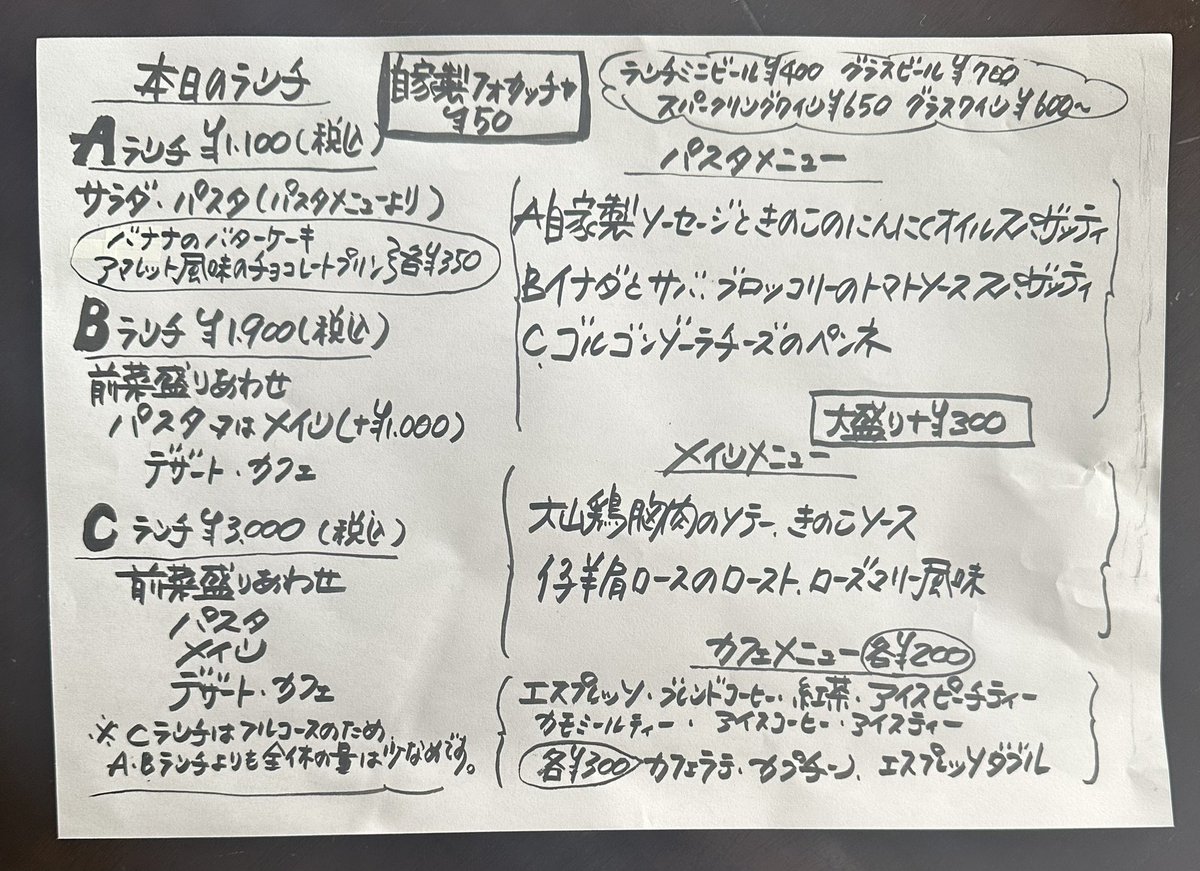 本日のランチ
Aランチ ¥1.100(税込)
サラダ・パスタ(パスタメニューより)
バナナのバターケーキ
アマレット風味のチョコレートプリン}各¥350
Bランチ ¥1.900(税込)
前菜盛りあわせ
パスタ又はメイン(+¥1.000)
デザート・カフェ
Cランチ ¥3.000 (税込)
前菜盛りあわせ
パスタ
メイン
デザート・カフェ
※Cランチはフルコースのため
A・Bランチよりも全体の量は少なめです。
自家製フォカッチャ
¥50
ランチミニビール¥400 グラスビール¥700
スパークリングワイン¥650 グラスワイン¥600〜
パスタメニュー
A自家製ソーセージときのこのにんにくオイルスパゲッティ
Bイナダとサバ、ブロッコリーのトマトソーススパゲッティ
C.ゴルゴンゾーラチーズのペンネ
大盛り+¥300
メインメニュー
大山鶏胸肉のソテー、きのこソース
仔羊肩ロースのロースト、ローズマリー風味
カフェメニュー 各¥200
エスプレッソ・ブレンドコーヒー・紅茶・アイスピーチティー
カモミールティー・アイスコーヒー・アイスティー
各¥300 カフェラテ・カプチーノ、エスプレッソダブル